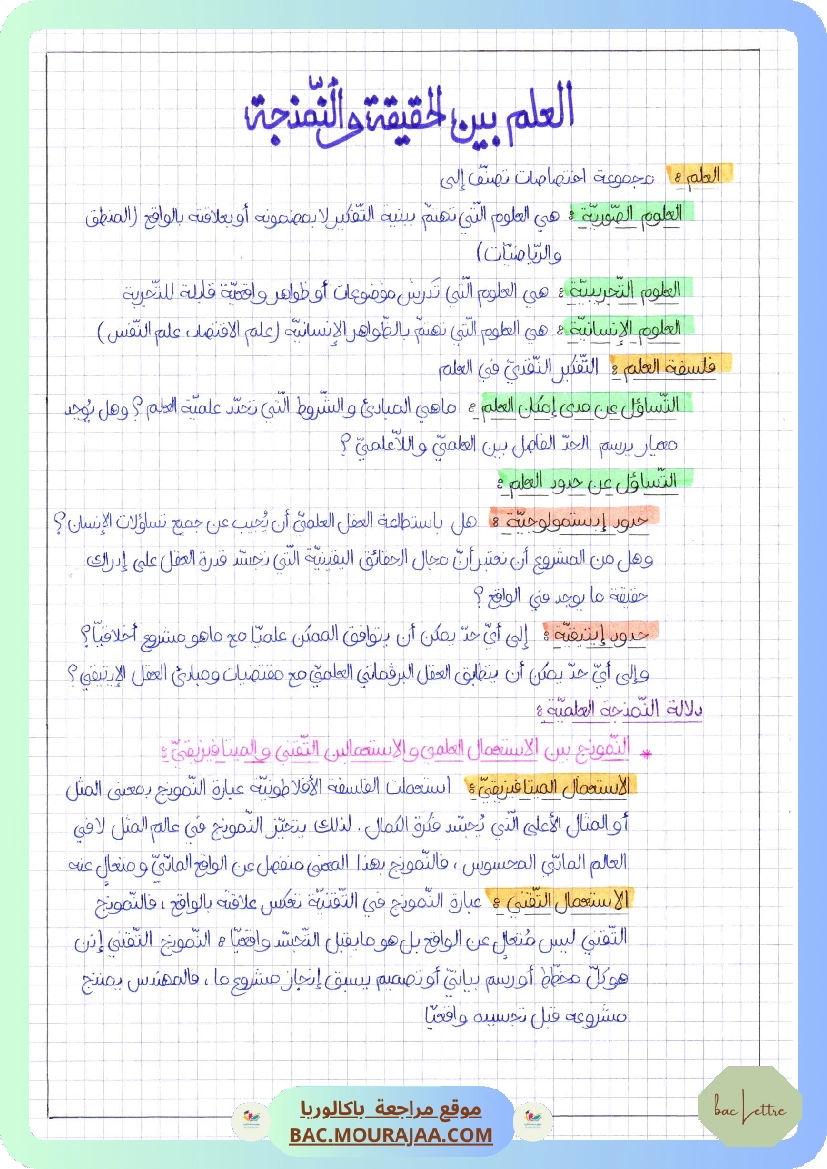 العلم بين الحقيقة والنّمذجة
العلم: مجموعة اختصاصات تصنّف إلى
العلوم الصّوريّة: هي العلوم الّتي تهتمّ ببنية التّفكير لا بمضمونه أو بعلاقته بالواقع (المنطق
والرّياضيّات)
العلوم التّجريبيّة: هي العلوم الّتي تدرس موضوعات أو ظواهر واقعيّة قابلة للتّجربة
العلوم الإنسانيّة: هي العلوم الّتي تهتمّ بالظّواهر الإنسانيّة (علم الاقتصاد، علم النّفس)
فلسفة العلم: التّفكير النّقديّ في العلم
التّساؤل عن مدى إمكان العلم: ماهي المبادئ والشّروط الّتي تحدّد علميّة العلم؟ وهل يُوجد
معيار يرسم الحدّ الفاصل بين العلميّ واللّاعلميّ؟
التّساؤل عن حدود العلم:
حدود إبستمولوجيّة: هل باستطاعة العقل العلميّ أن يُجيب عن جميع تساؤلات الإنسان؟
وهل من المشروع أن نعتبر أنّ مجال الحقائق اليقينيّة الّتي تجسّد قدرة العقل على إدراك
حقيقة ما يوجد في الواقع؟
حدود إيتيقيّة: إلى أيّ حدّ يمكن أن يتوافق الممكن علميّا مع ماهو مشروع أخلاقيّا؟
وإلى أيّ حدّ يمكن أن يتطابق العقل البرغماتي العلميّ مع مقتضيات ومبادئ العقل الإيتيقي؟
دلالة النّمذجة العلميّة:
* النّموذج بين الاستعمال العلمي والاستعمالين التّقني والميتافيزيقيّ:
الاستعمال الميتافيزيقيّ: استعملت الفلسفة الأفلاطونيّة عبارة النّموذج بمعنى المثل
أو المثال الأعلى الّتي يُجسّد فكرة الكمال. لذلك يتحيّز النّموذج في عالم المثل لا في
العالم المادّي المحسوس، فالنّموذج بهذا المعنى منفصل عن الواقع المادّيّ ومتعالٍ عنه
الاستعمال التّقني: عبارة النّموذج في التّقنيّة تعكس علاقته بالواقع، فالنّموذج
التّقني ليس مُتعالٍ عن الواقع بل هو مايقبل التّجسّد واقعيّا: النّموذج التّقني إذن
هو كلّ مخطّط أو رسم بيانيّ أو تصميم يسبق إنجاز مشروع ما، فالمهندس يمنذج
مشروعه قبل تجسيده واقعيّا
موقع مراجعة باكالوريا
BAC.MOURAJAA.COM
bac Lettre